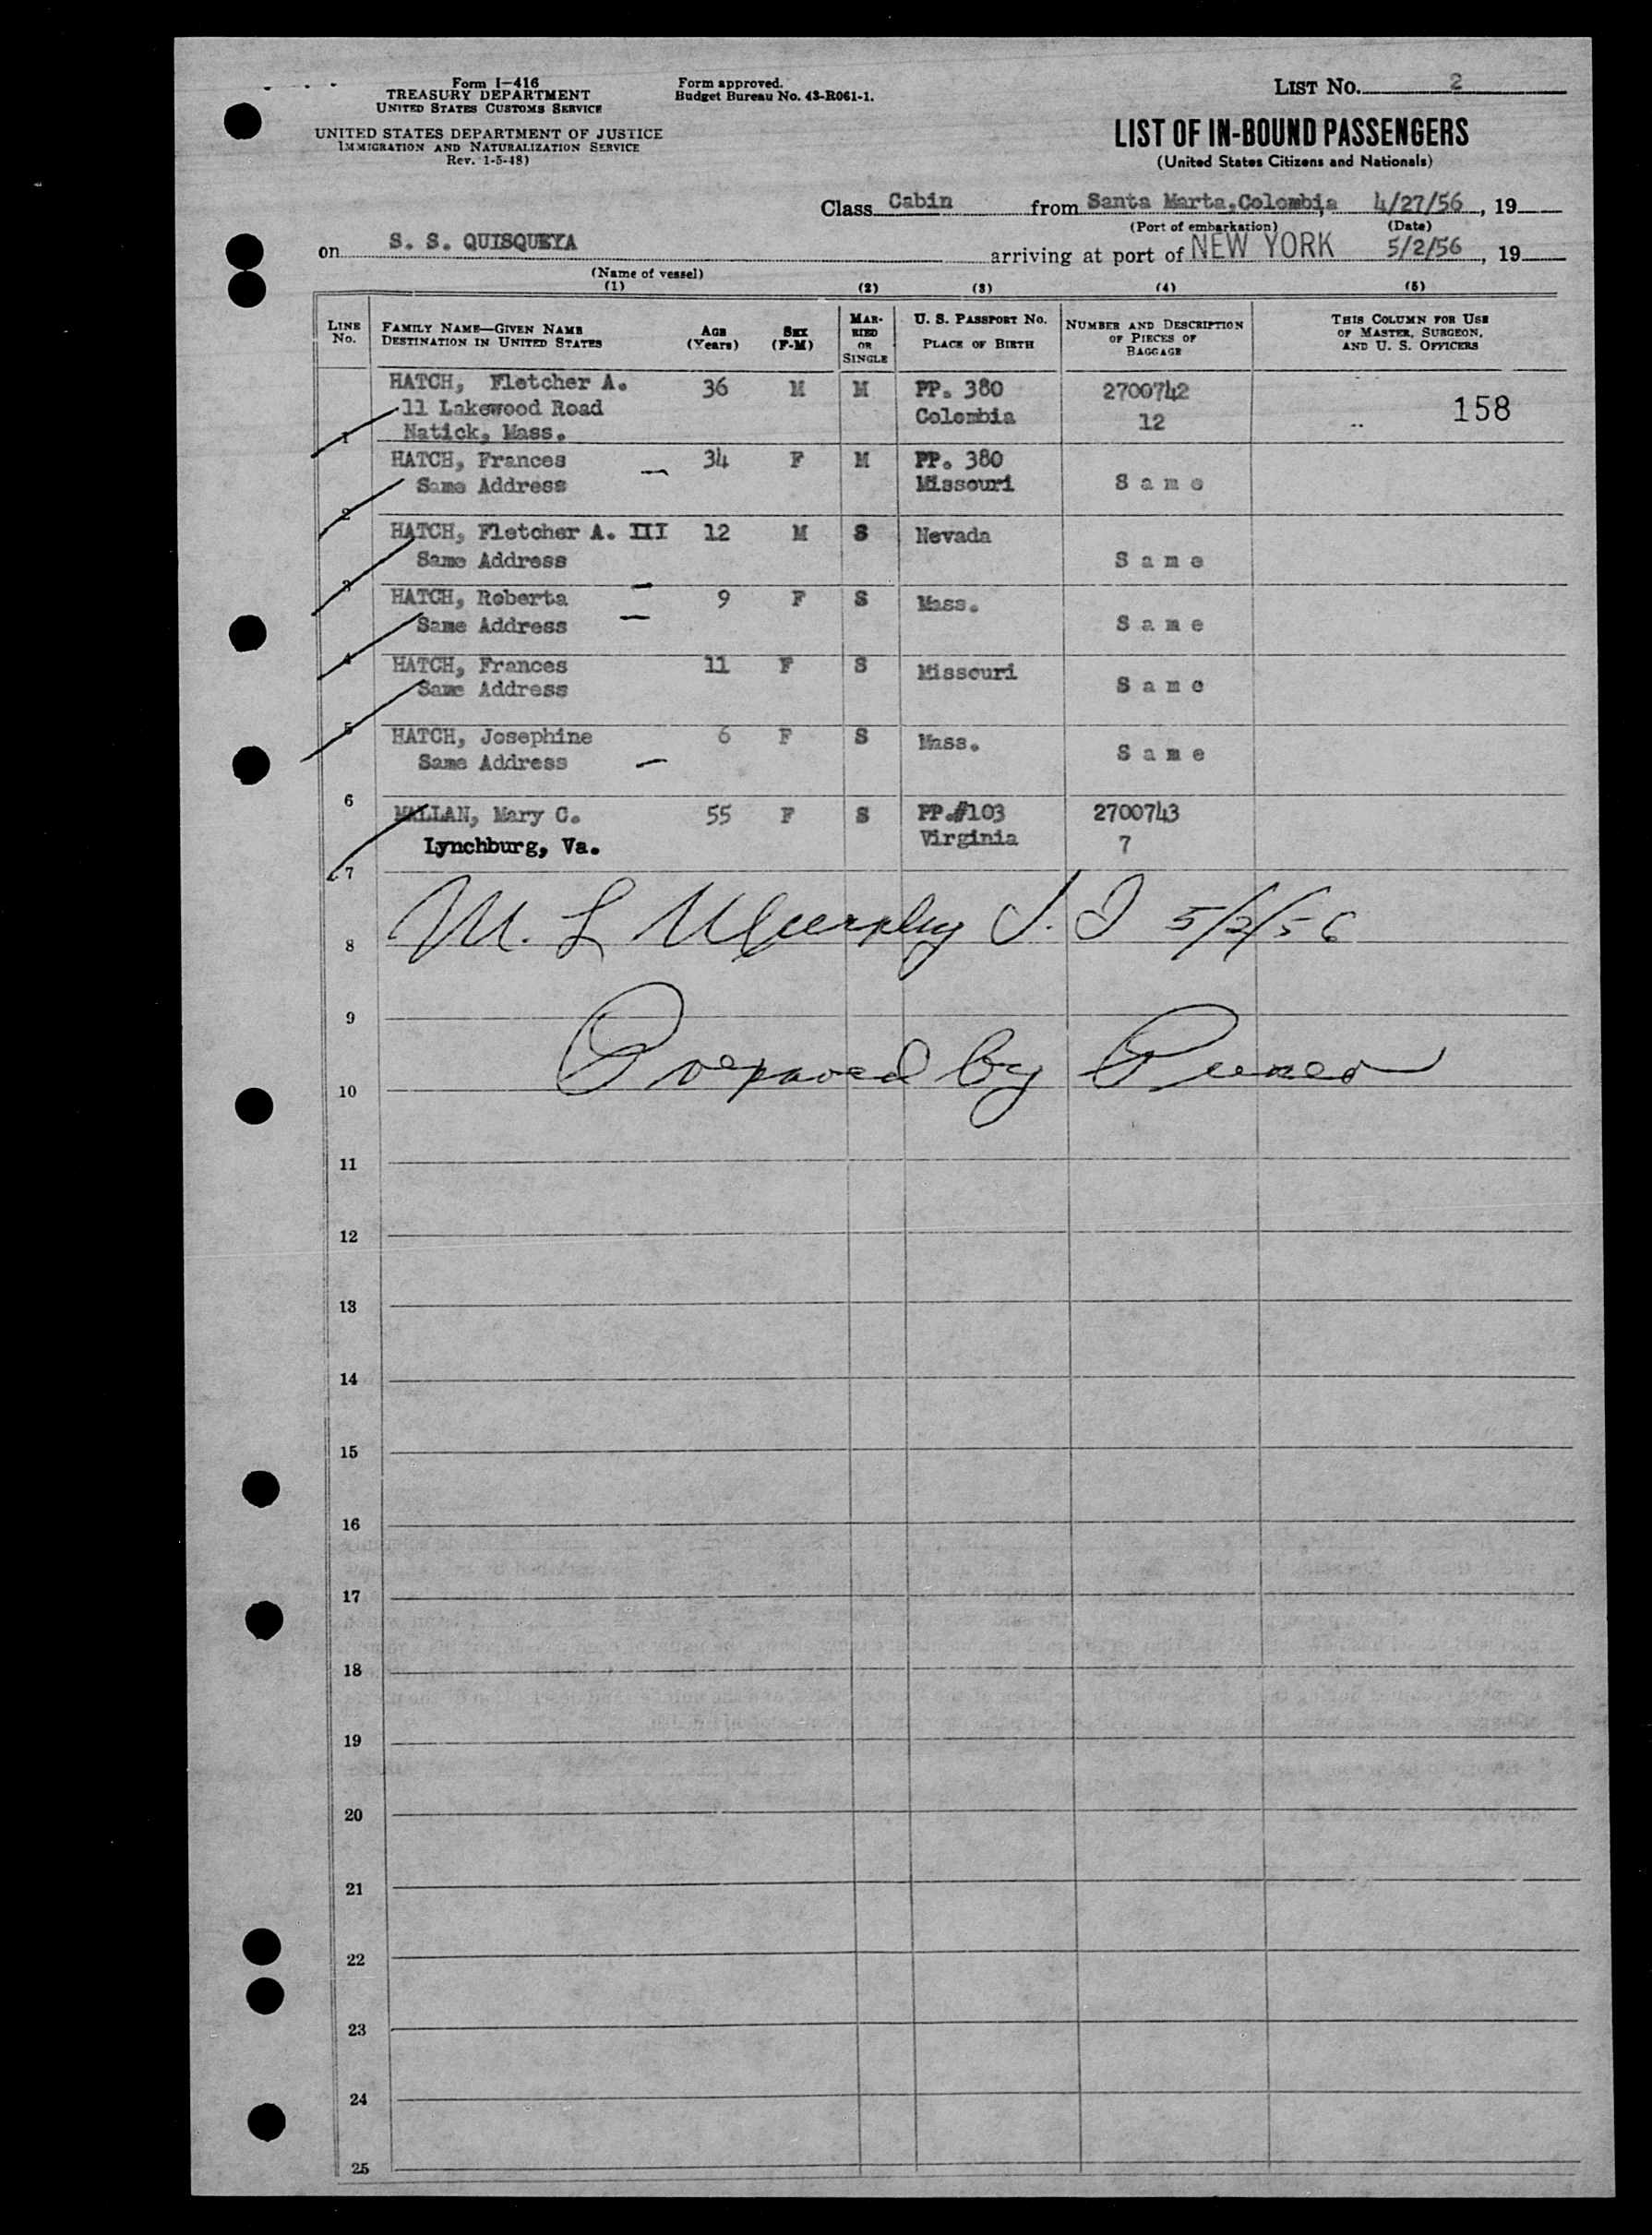 Form I-416
TREASURY DEPARTMENT
UNITED STATES CUSTOMS SERVICE
UNITED STATES DEPARTMENT OF JUSTICE
IMMIGRATION AND NATURALIZATION SERVICE
Rev. 1-5-48)
Form approved.
Budget Bureau No. 43-R061-1.
LIST No. 2
LIST OF IN-BOUND PASSENGERS
(United States Citizens and Nationals)
Class Cabin from Santa Marta, Colombia, 4/27/56, 19
(Port of embarkation) (Date)
on S. S. QUISQUEYA arriving at port of NEW YORK 5/2/56, 19
(Name of vessel)
(1) (2) (3) (4) (5)
LINE No. FAMILY NAME—GIVEN NAME DESTINATION IN UNITED STATES AGE (Years) SEX (F-M) MARRIED OR SINGLE U. S. PASSPORT No. PLACE OF BIRTH NUMBER AND DESCRIPTION OF PIECES OF BAGGAGE THIS COLUMN FOR USE OF MASTER, SURGEON, AND U. S. OFFICERS
HATCH, Fletcher A. 36 M M PP. 380 2700742
11 Lakewood Road Colombia 12 158
1 Natick, Mass.
HATCH, Frances 34 F M PP. 380
Same Address Missouri Same
2
HATCH, Fletcher A. III 12 M S Nevada
Same Address Same
3
HATCH, Roberta 9 F S Mass.
Same Address Same
4
HATCH, Frances 11 F S Missouri
Same Address Same
5
HATCH, Josephine 6 F S Mass.
Same Address Same
6
MALLAN, Mary C. 55 F S PP.#103 2700743
Lynchburg, Va. Virginia 7
7
M. L Murphy 5/2/56
8
9
Prepared by Purser
10
11
12
13
14
15
16
17
18
19
20
21
22
23
24
25